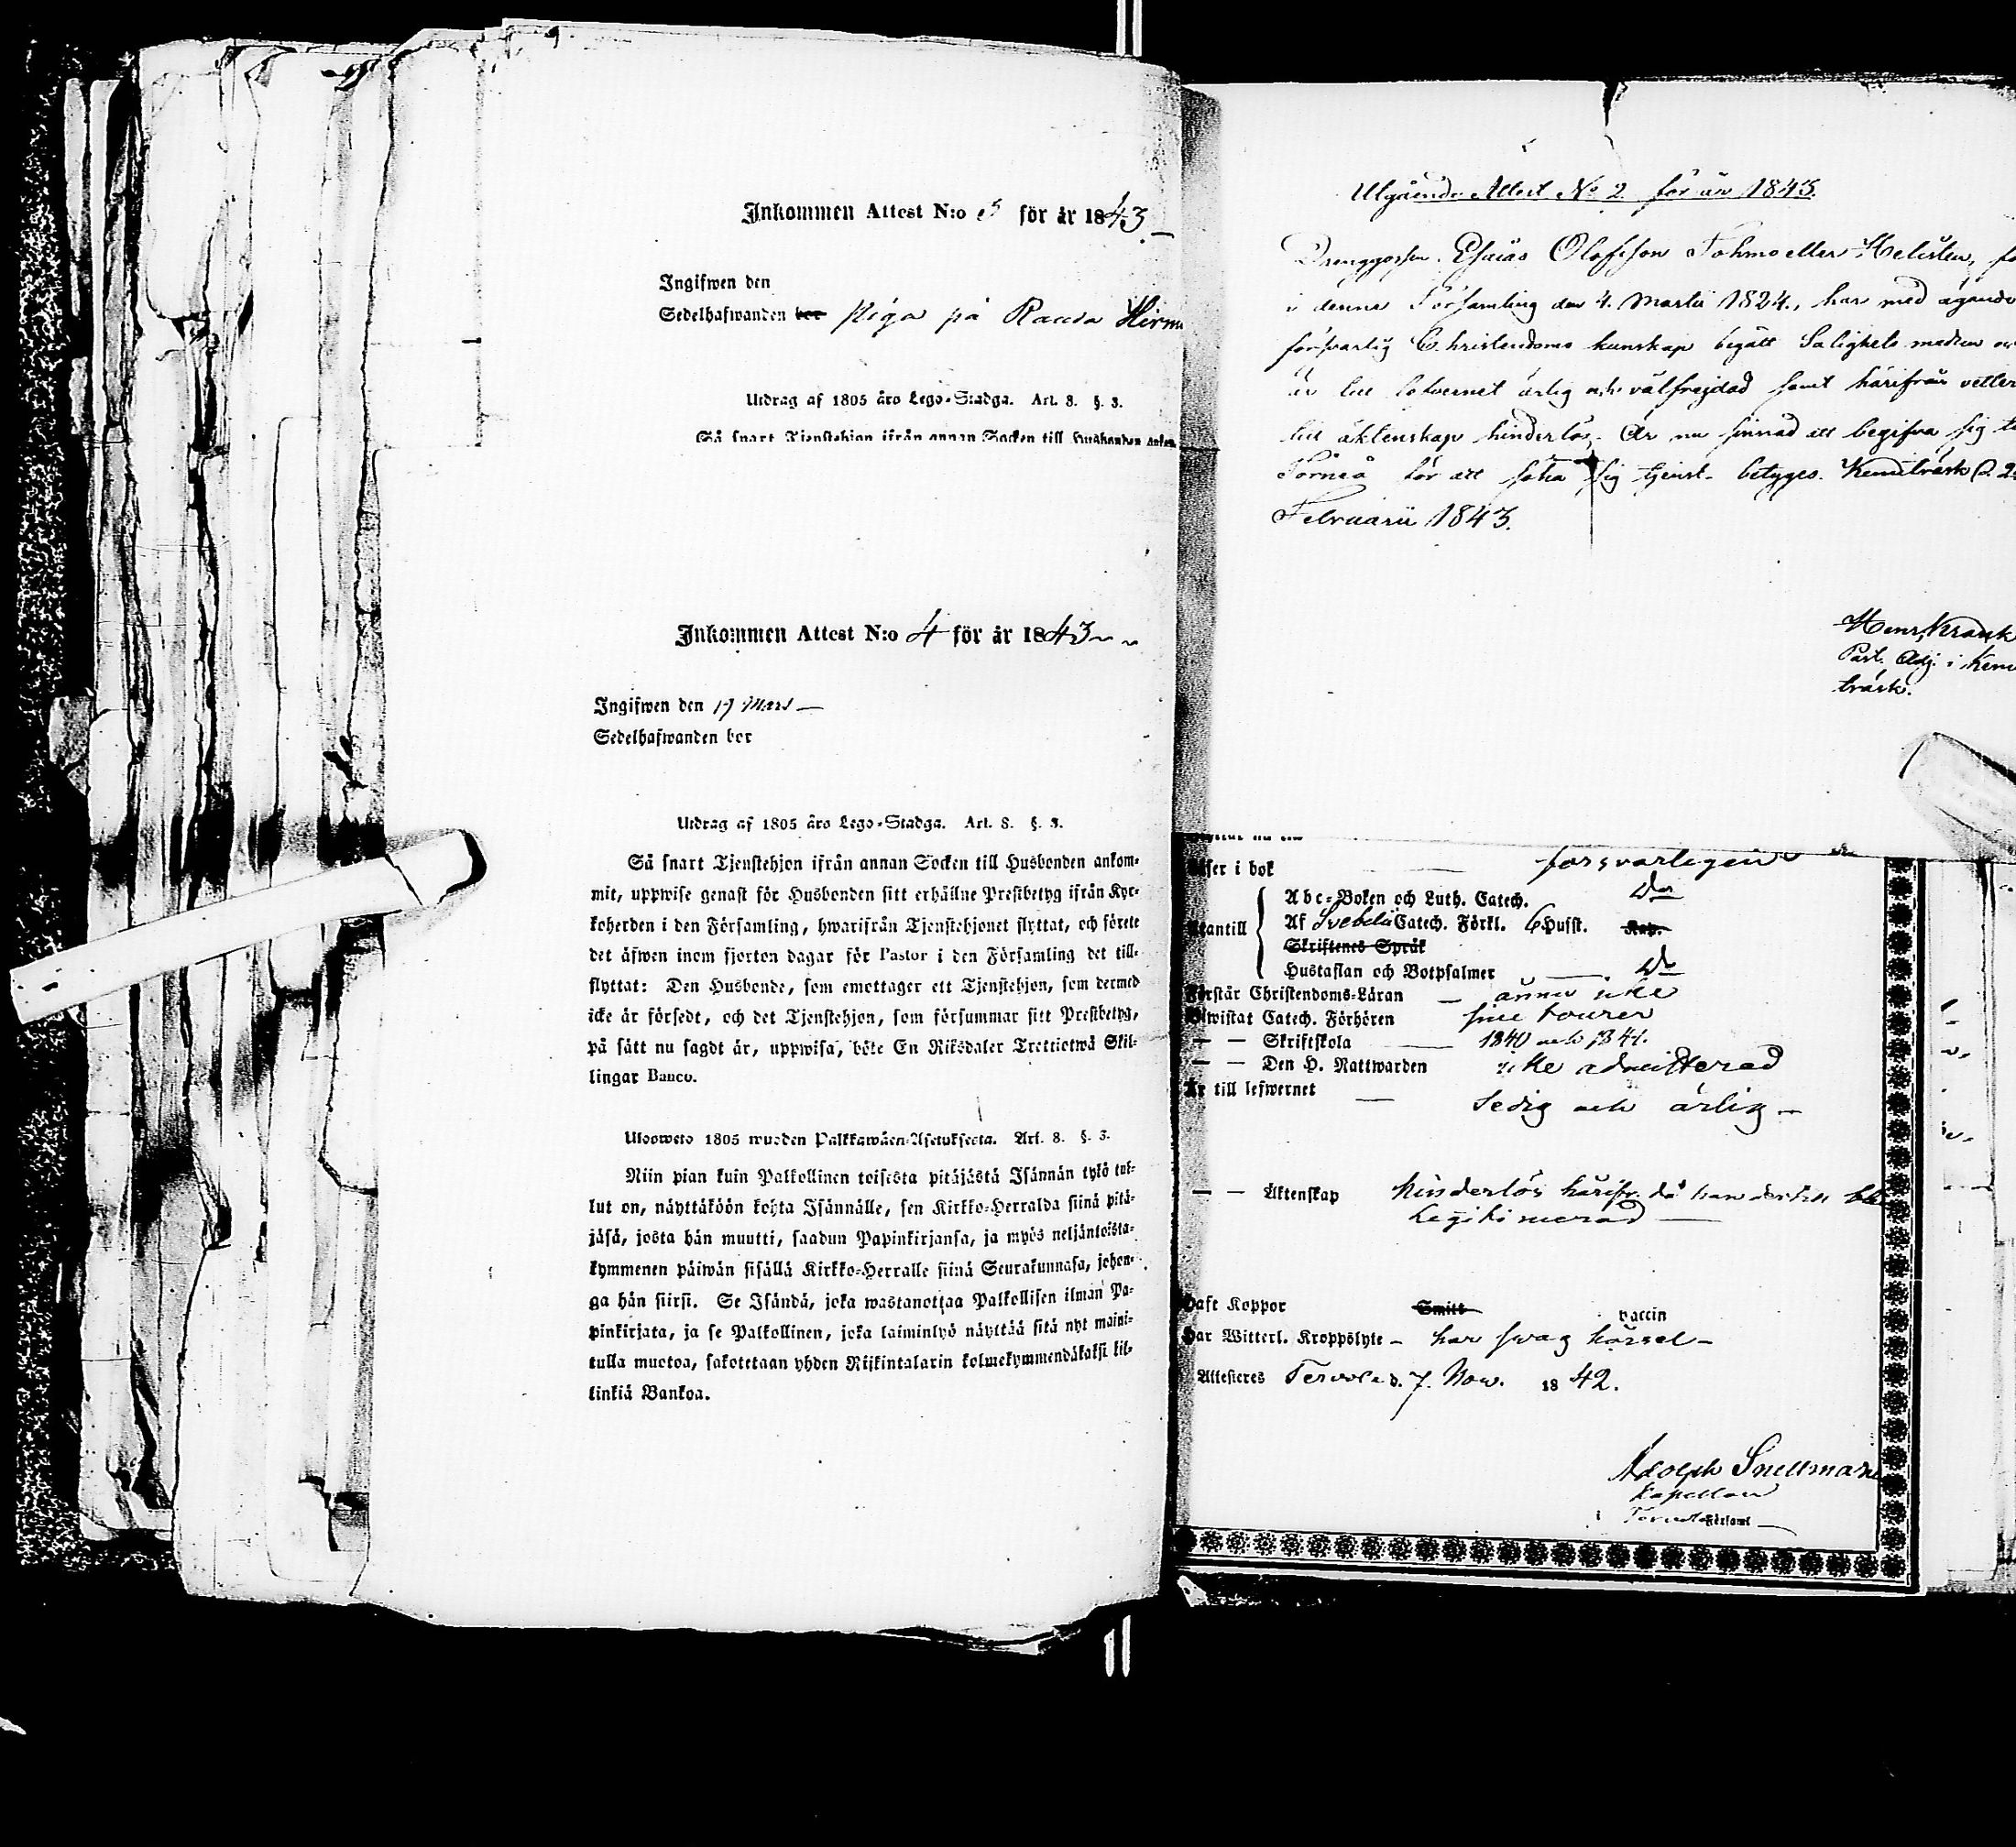 Inkommen Attest N:o 3 för år 1843
Ingifwen den
Sedelhafwanden bor Piga på Rauda
Utdrag af 1805 års Lego-Stadga. Art. 8. §. 3.
Så snart Tjenstehjon ifrån annan Socken till Husbonden ankom
Inkommen Attest N:o 4 för år 1843
Ingifwen den 17 Mars
Sedelhafwanden bor
Utdrag af 1805 års Lego-Stadga. Art. 8. §. 3.
Så snart Tjenstehjon ifrån annan Socken till Husbonden ankom-
mit, uppwise genast för Husbonden sitt erhållne Prestbetyg ifrån Kyr-
koherden i den Församling, hwarifrån Tjenstehjonet flyttat, och förete
det äfwen inom fjorton dagar för Pastor i den Församling det till-
flyttat: Den Husbonde, som emottager ett Tjenstehjon, som dermed
icke är försedt, och det Tjenstehjon, som försummar sitt Prestbetyg,
på sätt nu sagdt är, uppwisa, böte En Riksdaler Trettiotwå Skil-
lingar Banco.
Uloosweto 1805 wuoden Palkkawäen-Asetuksesta. Art. 8. §. 3.
Niin pian kuin Palkollinen toisesta pitäjästä Isännän tykö tul-
lut on, näyttäköön kohta Isännälle, sen Kirkko-Herralda siinä pitä-
jäsä, josta hän muutti, saadun Papinkirjansa, ja myös neljäntoista-
kymmenen päiwän sisällä Kirkko-Herralle siinä Seurakunnasa, johon-
ga hän siirsi. Se Isändä, joka wastanottaa Palkollisen ilman Pa-
pinkirjata, ja se Palkollinen, joka laiminlyö näyttää sitä nyt maini-
tulla muotoa, sakotetaan yhden Rijkintalarin kolmekymmendäkaksi kil-
linkiä Bankoa.
Utgående Attest No 2 för år 1843.
Drenggossen Esaias Olofsson Tohmo eller Helisten, fö
i denna Församling den 4. Martii 1824., har med ägande
försvarlig Christendoms kunskap begått Salighets medlen oc
är till lefvernet ärlig och välfrejdad samt härifrån vetter
till äktenskap hinderlös. Är nu sinnad att begifva sig ti
Torneå för att söka sig tjenst. betyges. Kemiträsk d. 2
Februarii 1843.
Henr. Krank
Past. Adj. i Kem
träsk.
äser i bok försvarligen
Abc-Boken och Luth. Catech. do
utantill Af Svebelii Catech. Förkl. 6 Hufst. Kap.
Skriftenes Språk
Hustaflan och Botpsalmer do
Förstår Christendoms-Läran ännu icke
Biwistat Catech. Förhören sine tourer
— — Skriftskola 1840 och 1841.
— — Den H. Nattwarden icke admitterad
Är till lefwernet sedig och ärlig
— — Äktenskap hinderlös härifr. då han dertill
legitimerad
Haft Koppor Smitt vaccin
Har Witterl. Kroppslyte har swag hörsel
Attesteres Tervola d. 7. Nov. 1842.
Adolph Snellman
Kapellan
Församl